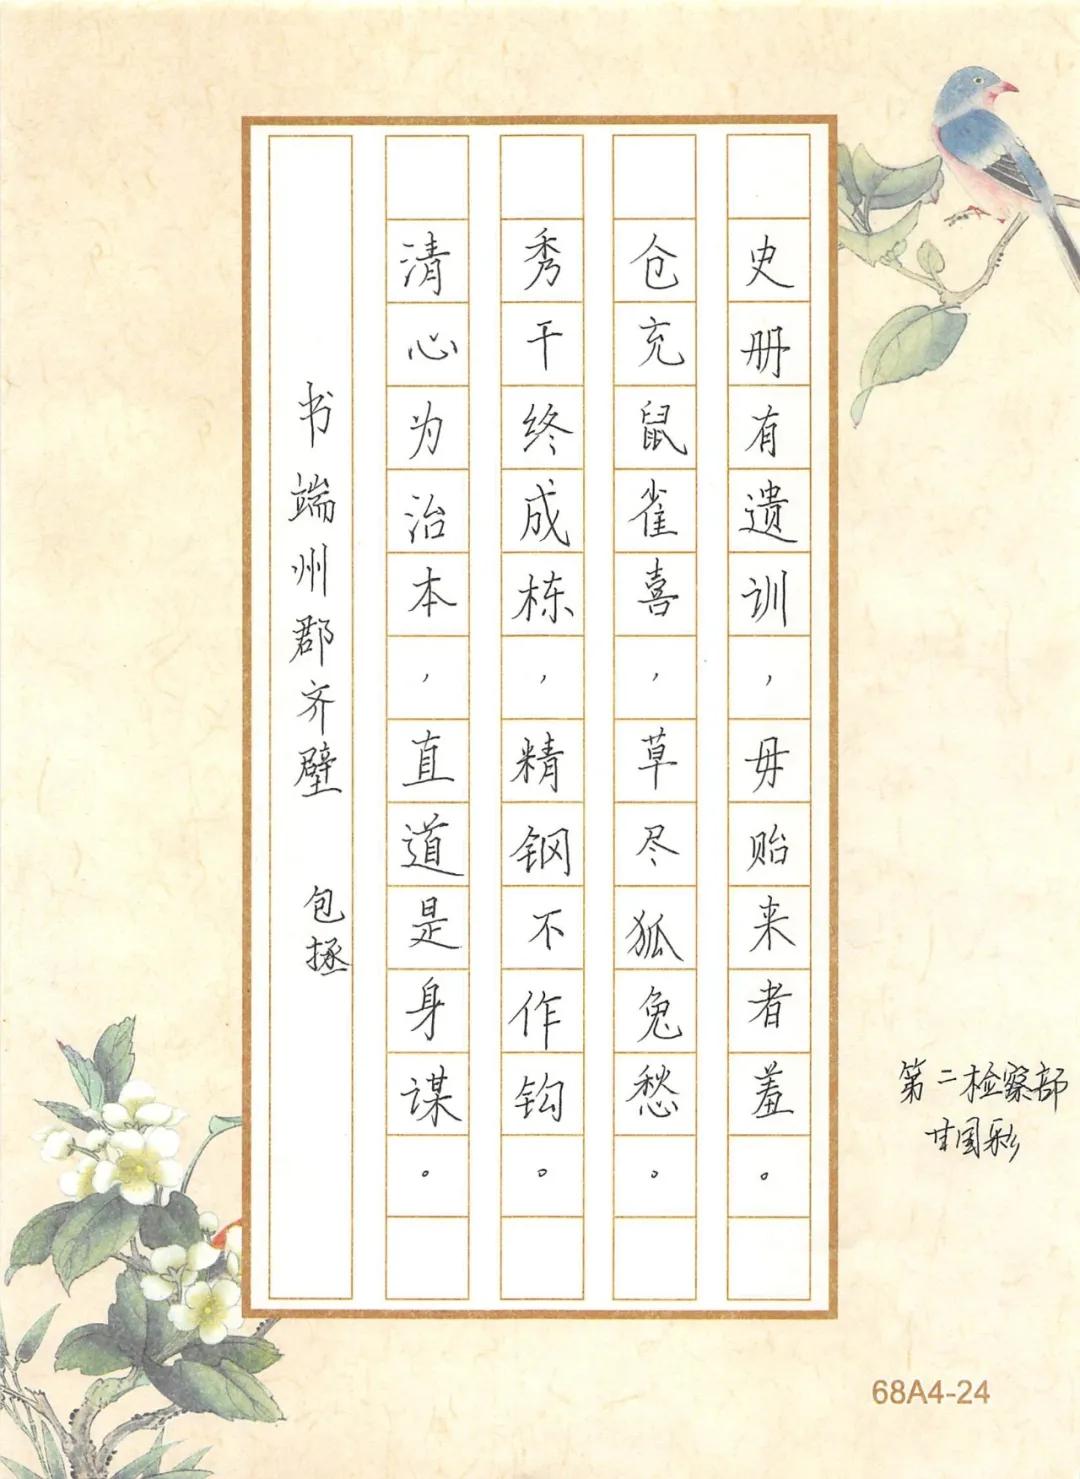 书端州郡齐壁 包拯
清心为治本，直道是身谋。
秀干终成栋，精钢不作钩。
仓充鼠雀喜，草尽狐兔愁。
史册有遗训，毋贻来者羞。
第二检察部
甘国彩
68A4-24